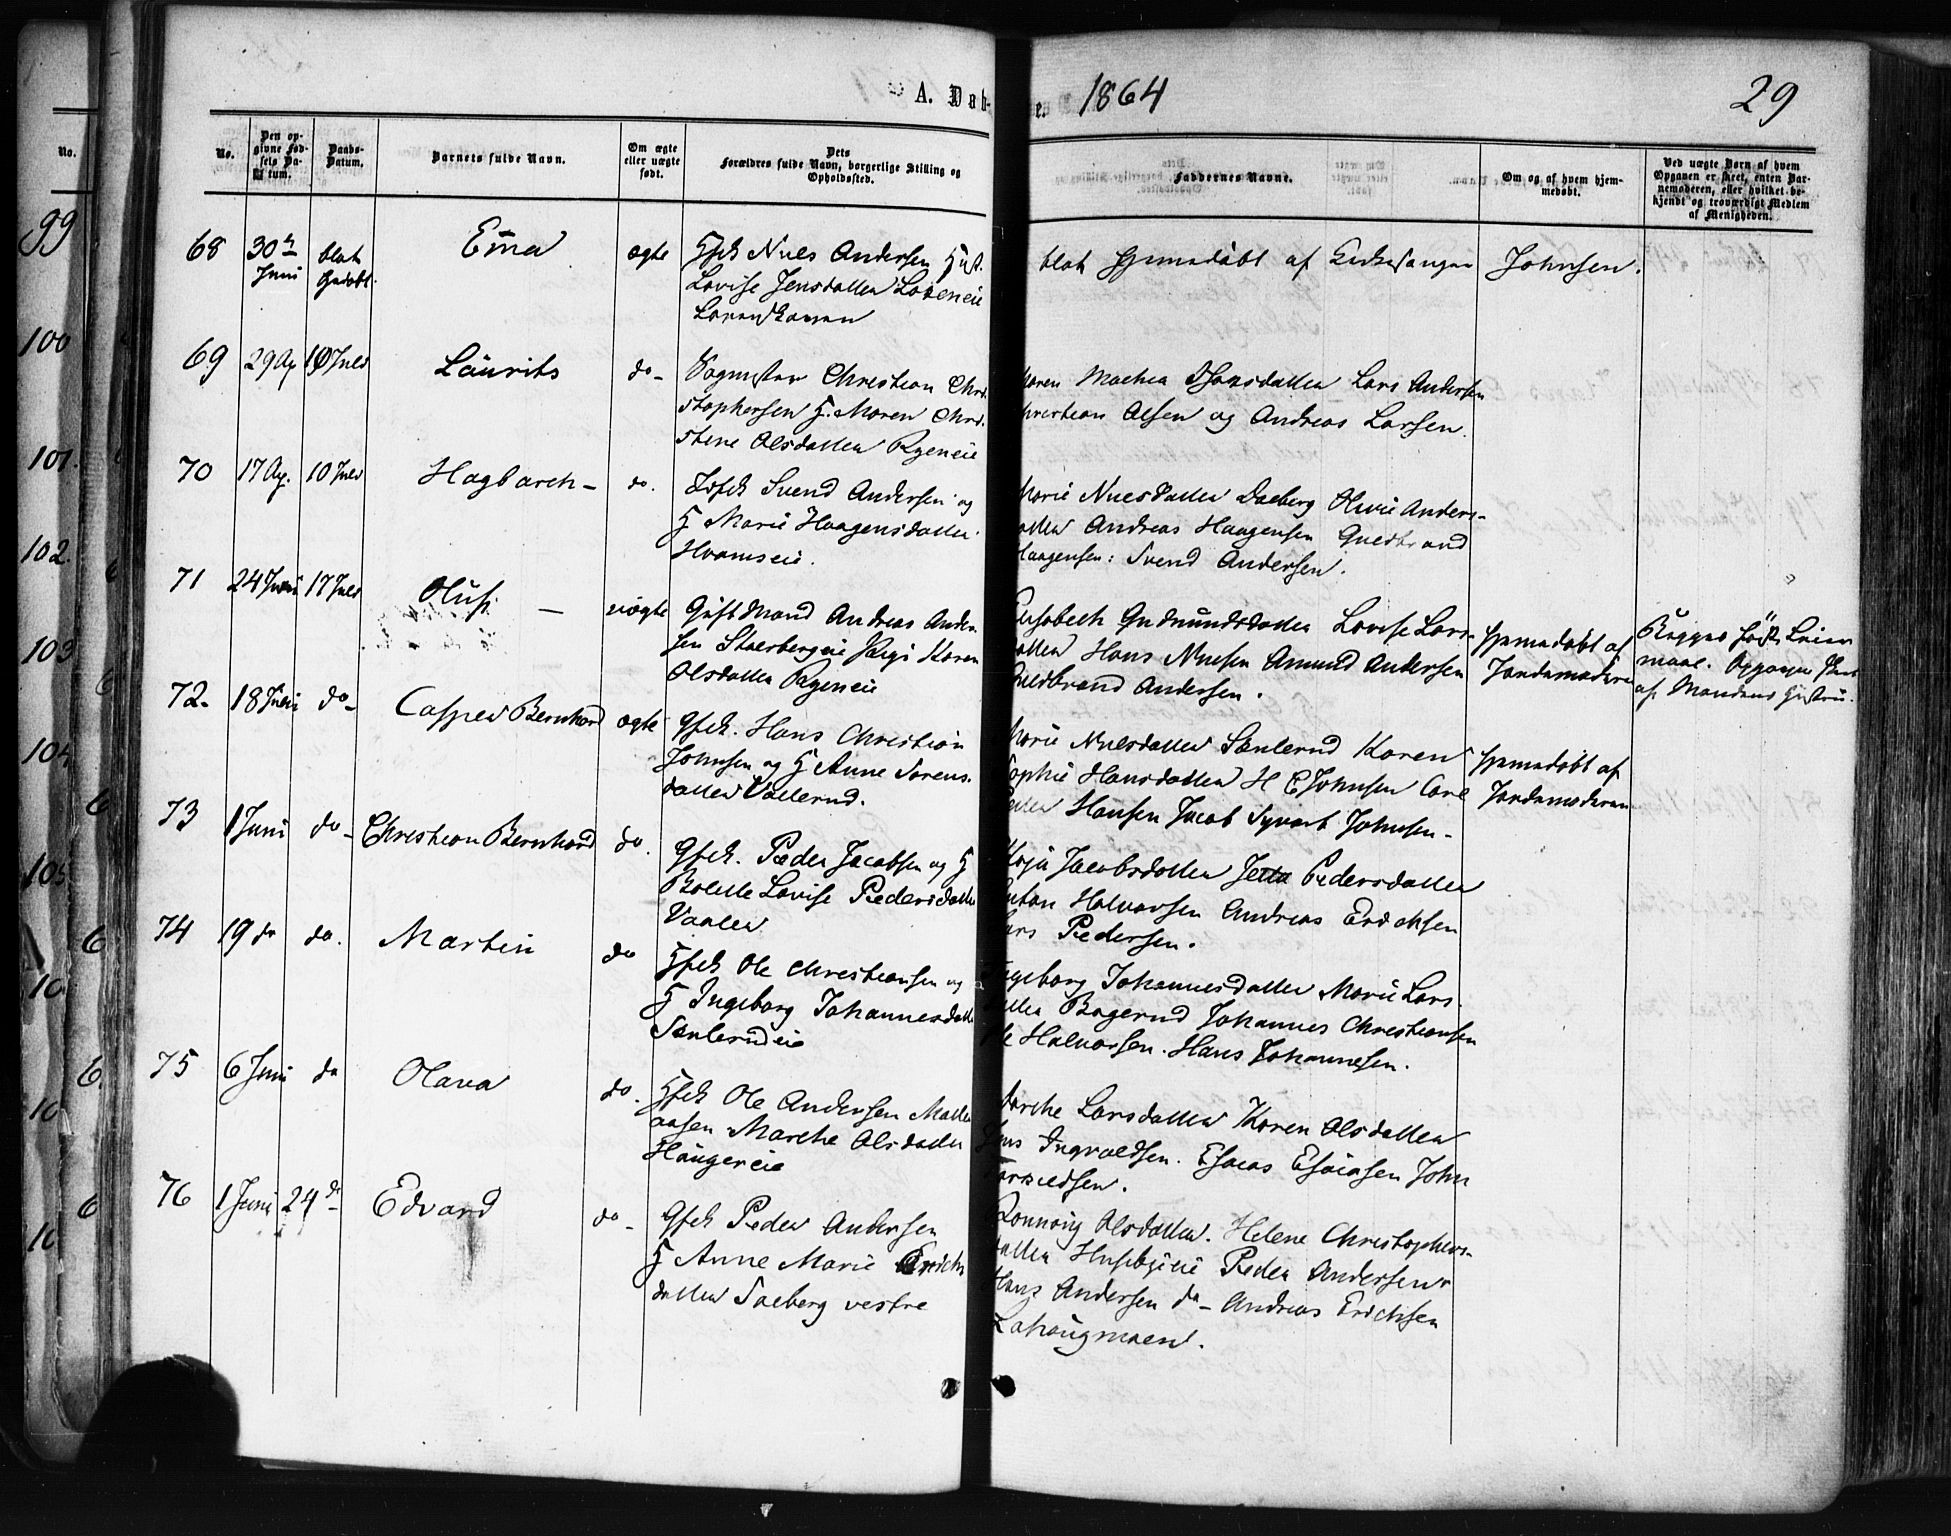 A. Døb- e. 1864
29
No.
Den opgivne Fødsels Datum.
Daabs-Datum.
Barnets fulde Navn.
Om ægte eller uægte født.
Dets Forældres fulde Navn, borgerlige Stilling og Opholdssted.
Faddernes Navne.
Om og af hvem hjemmedøbt.
Ved uægte Børn af hvem Opgaven er skeet, enten Barnemoderen, eller hvilket bekjendt og troværdigt Medlem af Menigheden.
68 30te Juni blot hjdøbt. Ema ægte
Nils Andersen Hust.
Lovise Jensdatter
blot hjemmedøbt af Kirkesanger Johnsen.
69 29 Ap 10 Juli Laurits do-
Christian Chri-
stophersen H. Maren Chri-
stine Olsdatter Ryeneie
Maren Mathea Lars Andersen
Christian Olsen og Andreas Larsen.
70 17 Ap. 10 Juli Hagbarth - do.
Svend Andersen og
H Marie Haagensdatter
Hvamseie.
Marie Nilsdatter Olivie Anders-
datter Andreas Haagensen Guldbrand
Haagensen: Svend Andersen.
71 24 Juni 17 Juli Oluf - uægte
Gift Mand Andreas Ander-
sen Pige Karen
Olsdatter Ryeneie
Elisabeth Gudmundsdatter Lovise Lars-
datter Hans Nilsen Amund Andersen
Guldbrand Andersen.
Hjemmedøbt af
Jordemoderen
Begges første Leier-
maal. Opgaven skeet
af Mandens Hustru.
72- 18 Juni do- Casper Bernhard ægte
Gfbk. Hans Christian
Johnsen og H Anne Sorens-
datter Vallerud.
Marie Nilsdatter Karen
Sophie Hansdatter H C Johnsen Carl
Hansen Jacob Syvert Johnsen-
Hjemmedøbt af
Jordemoderen
73 1 Juni do- Christian Bernhard do.
Gfbk. Peder Jacobsen og H
Bolette Lovise Pedersdatter
Vaaler
Maja Jacobsdatter Jetta Pedersdatter
Anton Halvorsen Andreas Erichsen
Lars Pedersen.
74 19 do do. Martin do
Hfbk Ole Christiansen og
H Ingeborg Johannesdatter
Ingeborg Johannesdatter Marie Lars-
datter Bagerud Johannes Christiansen
Ole Halvorsen. Hans Johannesen.
75 6 Juni do Olava do.
Hfbk Ole Andersen
Marthe Olsdatter
Haugereie
Marthe Larsdatter Karen Olsdatter
Jens Ingvaldsen. Esaias Esaiasen John
76 1 Juni 24 do- Edvard do-
Gfbk Peder Andersen
H Anne Marie Erichs
datter Solberg vestre
Ronnaug Olsdatter. Helene Christophers-
datter Husebyeie Peder Andersen
Hans Andersen do- Andreas Erichsen
Lahaugmoen.
99
100
101.
102.
103
104
105